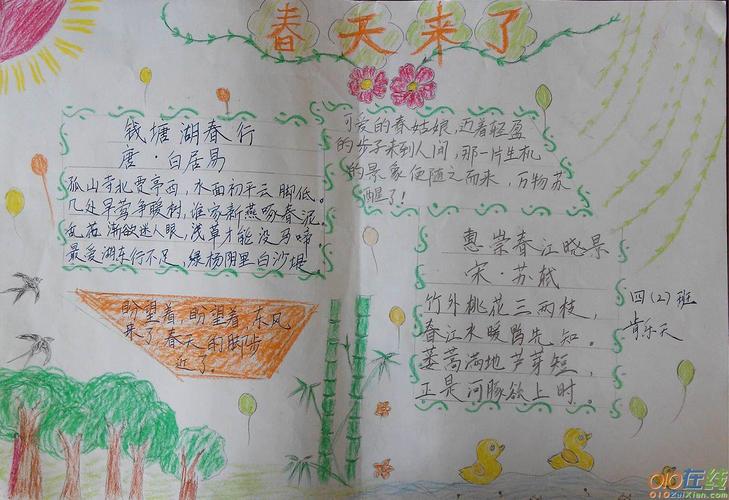 春天来了
钱塘湖春行
唐·白居易
孤山寺北贾亭西，水面初平云脚低。
几处早莺争暖树，谁家新燕啄春泥。
乱花渐欲迷人眼，浅草才能没马啼。
最爱湖东行不足，绿杨阴里白沙堤。
可爱的春姑娘，迈着轻盈
的步子来到人间，那一片生机
的景象便随之而来，万物苏
醒了！
盼望着，盼望着，东风
来了春天的脚步
近了.
惠崇春江晓景
宋·苏轼
竹外桃花三两枝，
春江水暖鸭先知。
蒌蒿满地芦芽短，
正是河豚欲上时。
四(2)班
肖乐天
010在线
010ZuiXian.com